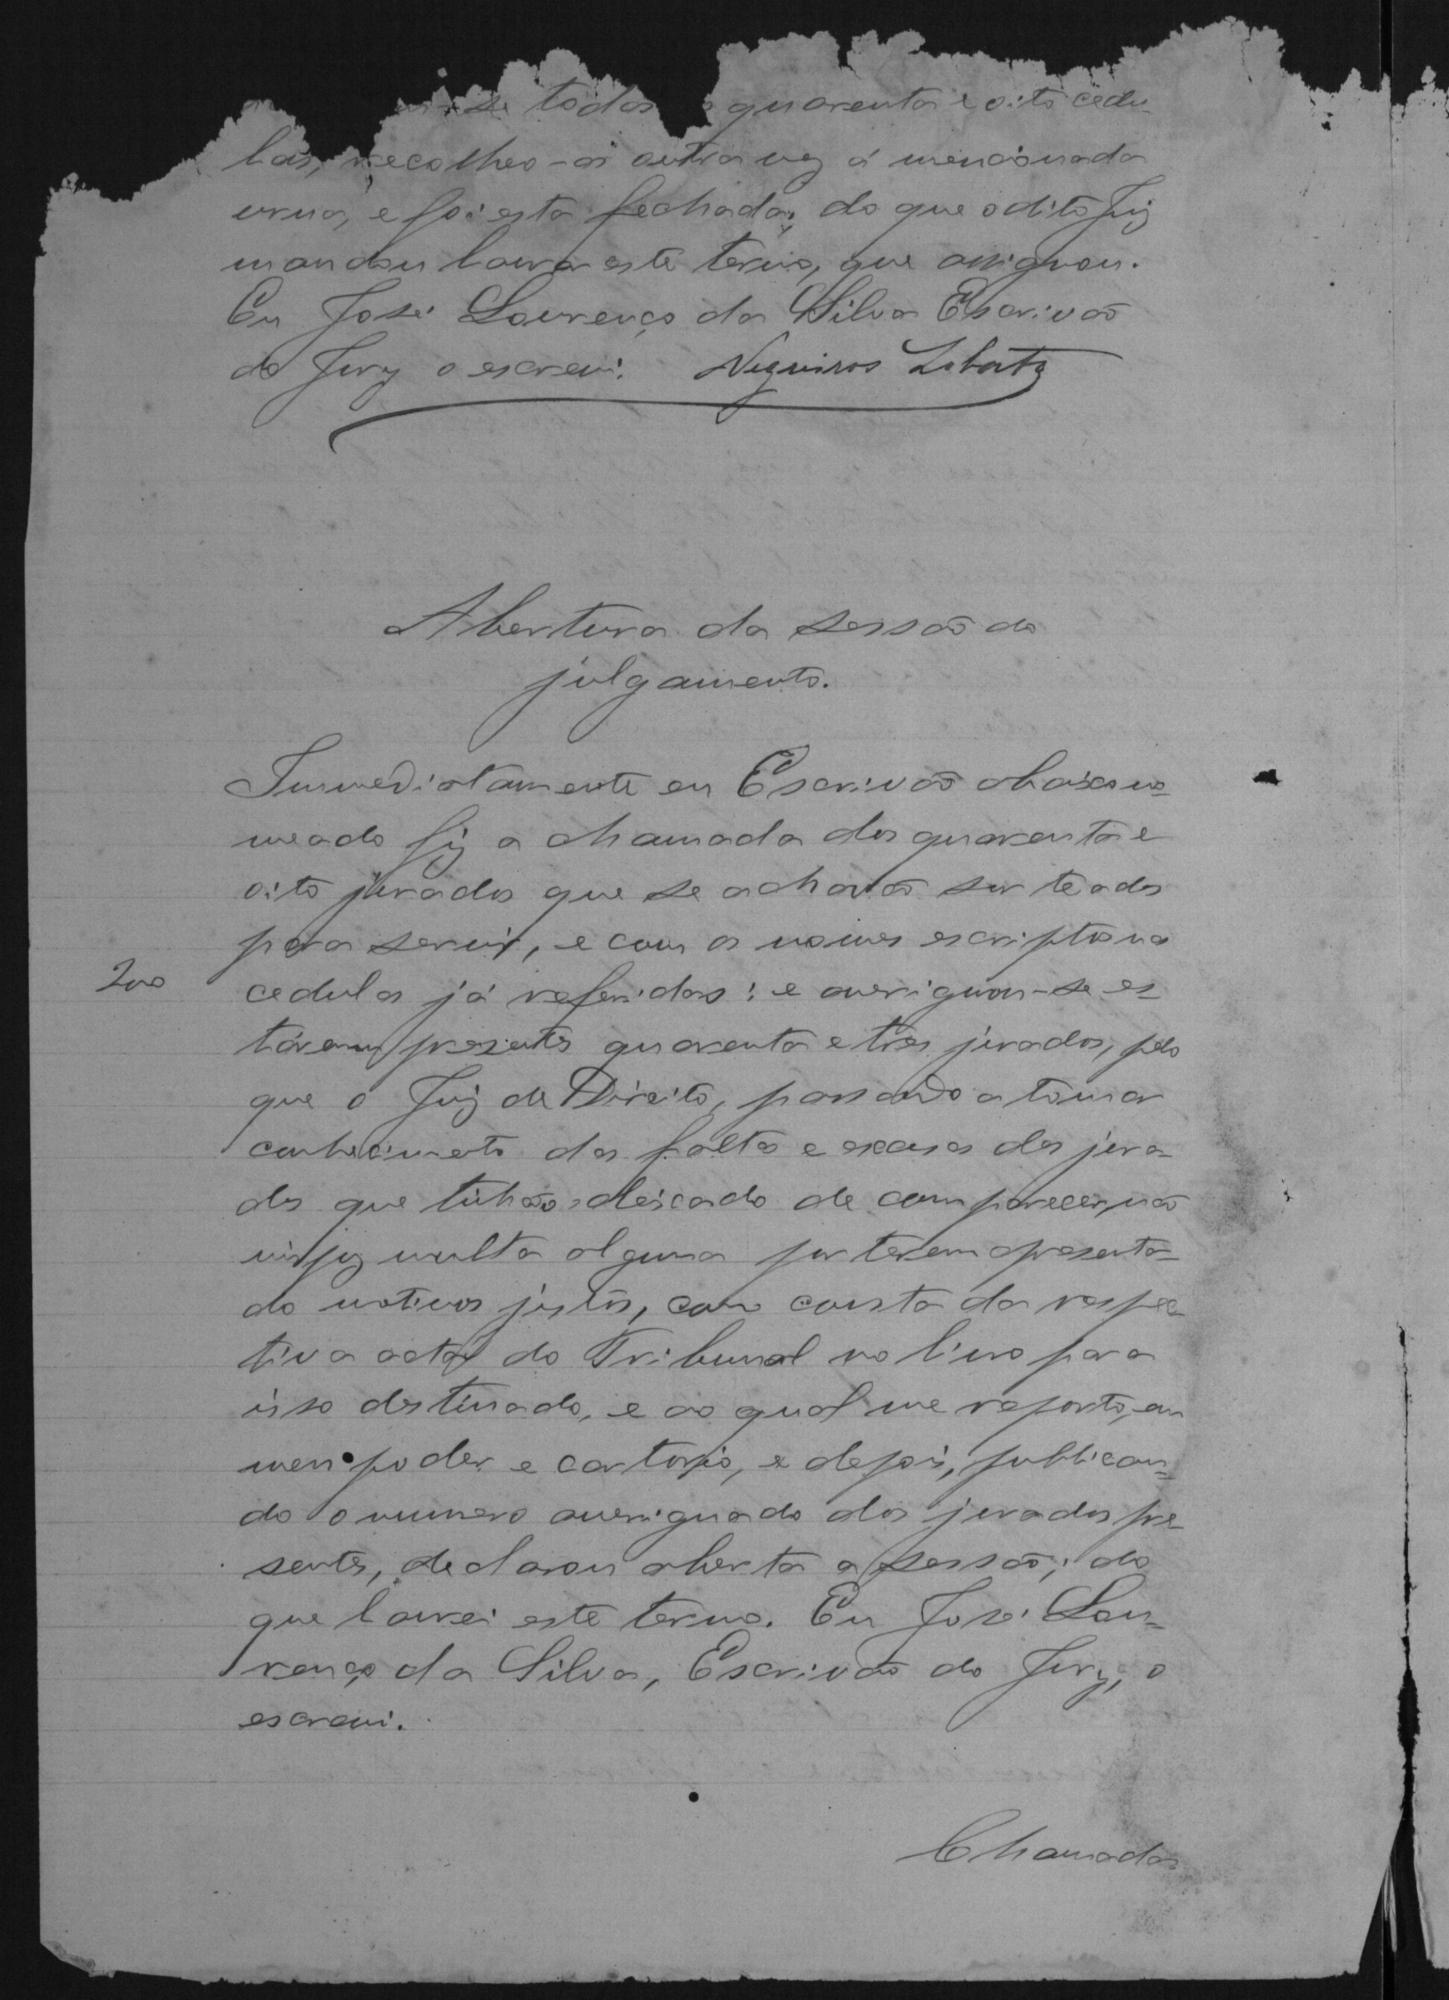 -se todas quarenta e oito cedu-
las, recolheo-as outra vez á mencionada
urna, e foi esta fechada; do que o dito Juiz
mandou lavrar este termo, que assignou.
Eu José Lourenço da Silva Escrivão
do Jury o escrevi.
Abertura da sessão do
julgamento.
Immediatamente eu Escrivão abaixo no-
meado fiz a chamada dos quarenta e
oito jurados que se achavão sorteados
para servir, e com os nomes escriptos na
cedulas já referidas: e averiguou-se es-
tárem presentes quarenta e tres jurados, pelo
que o Juiz de Direito, passando a tomar
conhecimento das faltas e escusas dos jura-
dos que tinhão deixado de comparecer, não
impoz multa alguma por terem apresenta-
do motivos justos, como consta da respec-
tiva acta do Tribunal no livro para
isso destinado, e ao qual me reporto, em
meu poder e cartorio, e depois, publican-
do o numero averiguado dos jurados pre-
sentes, declarou aberta a sessão; do
que lavrei este termo. Eu José Lou-
renço da Silva, Escrivão do Jury, o
escrevi.
Chamada